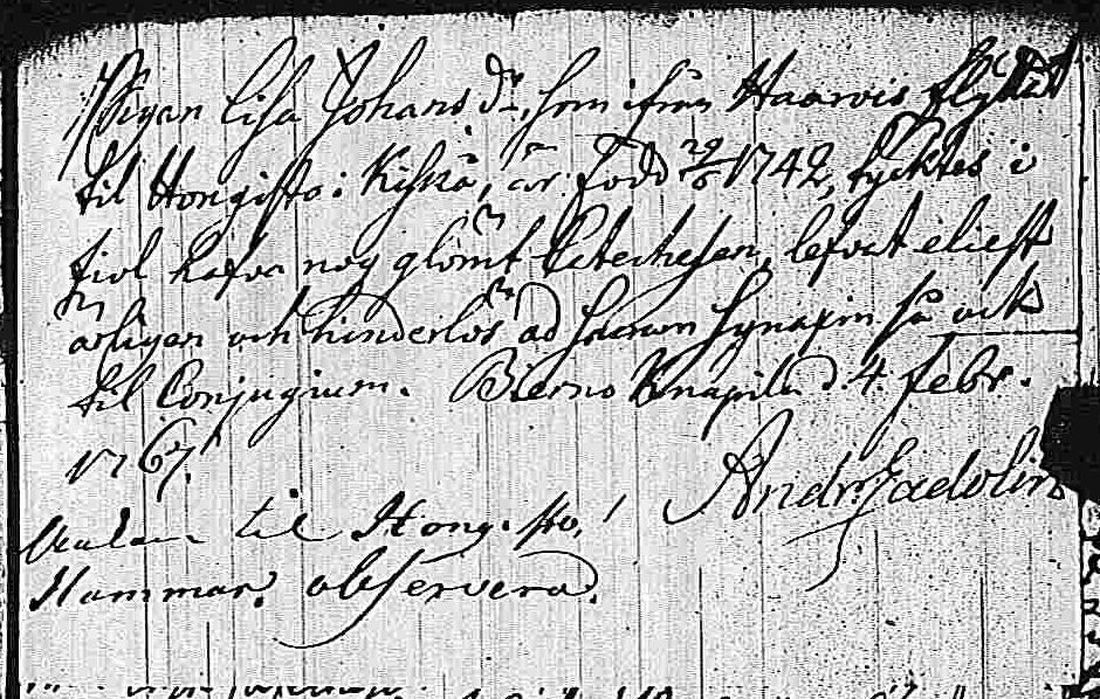 Pigan Lisa Johans dr, som ifrån Haarvis flyttat
til Hongisto i Kisko, är född 29/6 1742, tycktes i
fiol hafva nog glömt Catechesen, lefvat eliest
ärligen och hinderlös ad Sacram Synaxin så ock
til Conjugium. Bierno Knapila d. 4. Febr.
1767.
Andr. Zadolin
til Hongisto,
Hammar. observerad.